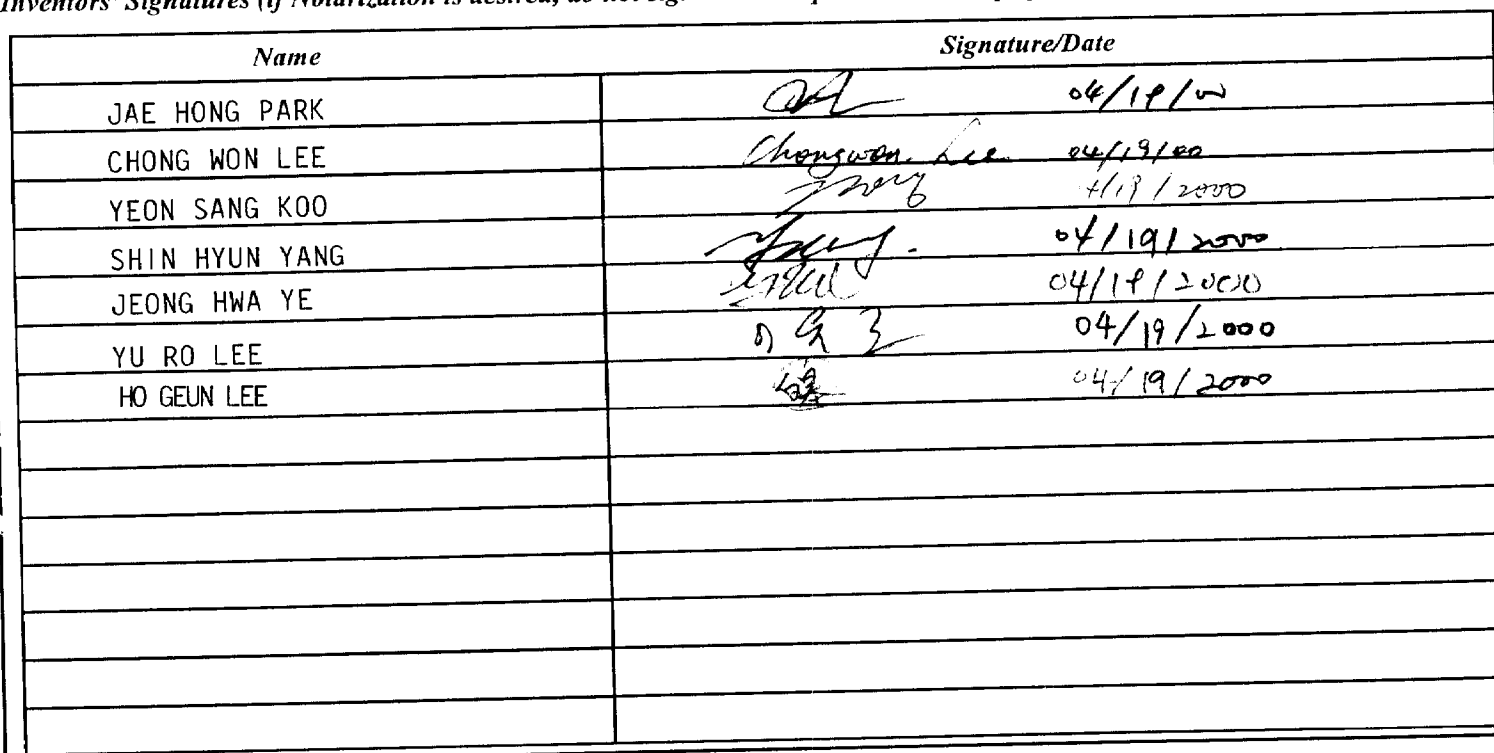 Inventors' Signatures (if Notarization is desired, do not sign
Name Signature/Date
JAE HONG PARK 04/19/00
CHONG WON LEE Chongwon Lee 04/19/00
YEON SANG KOO 4/19/2000
SHIN HYUN YANG 04/19/2000
JEONG HWA YE 04/19/2000
YU RO LEE 이유로 04/19/2000
HO GEUN LEE 04/19/2000